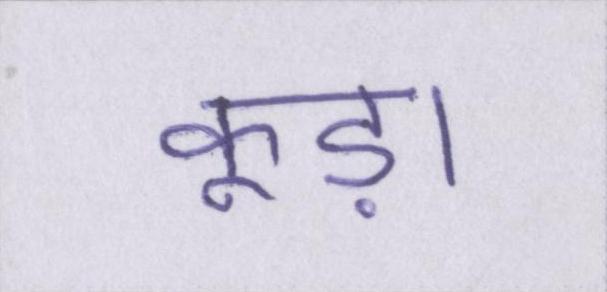 कूड़ा